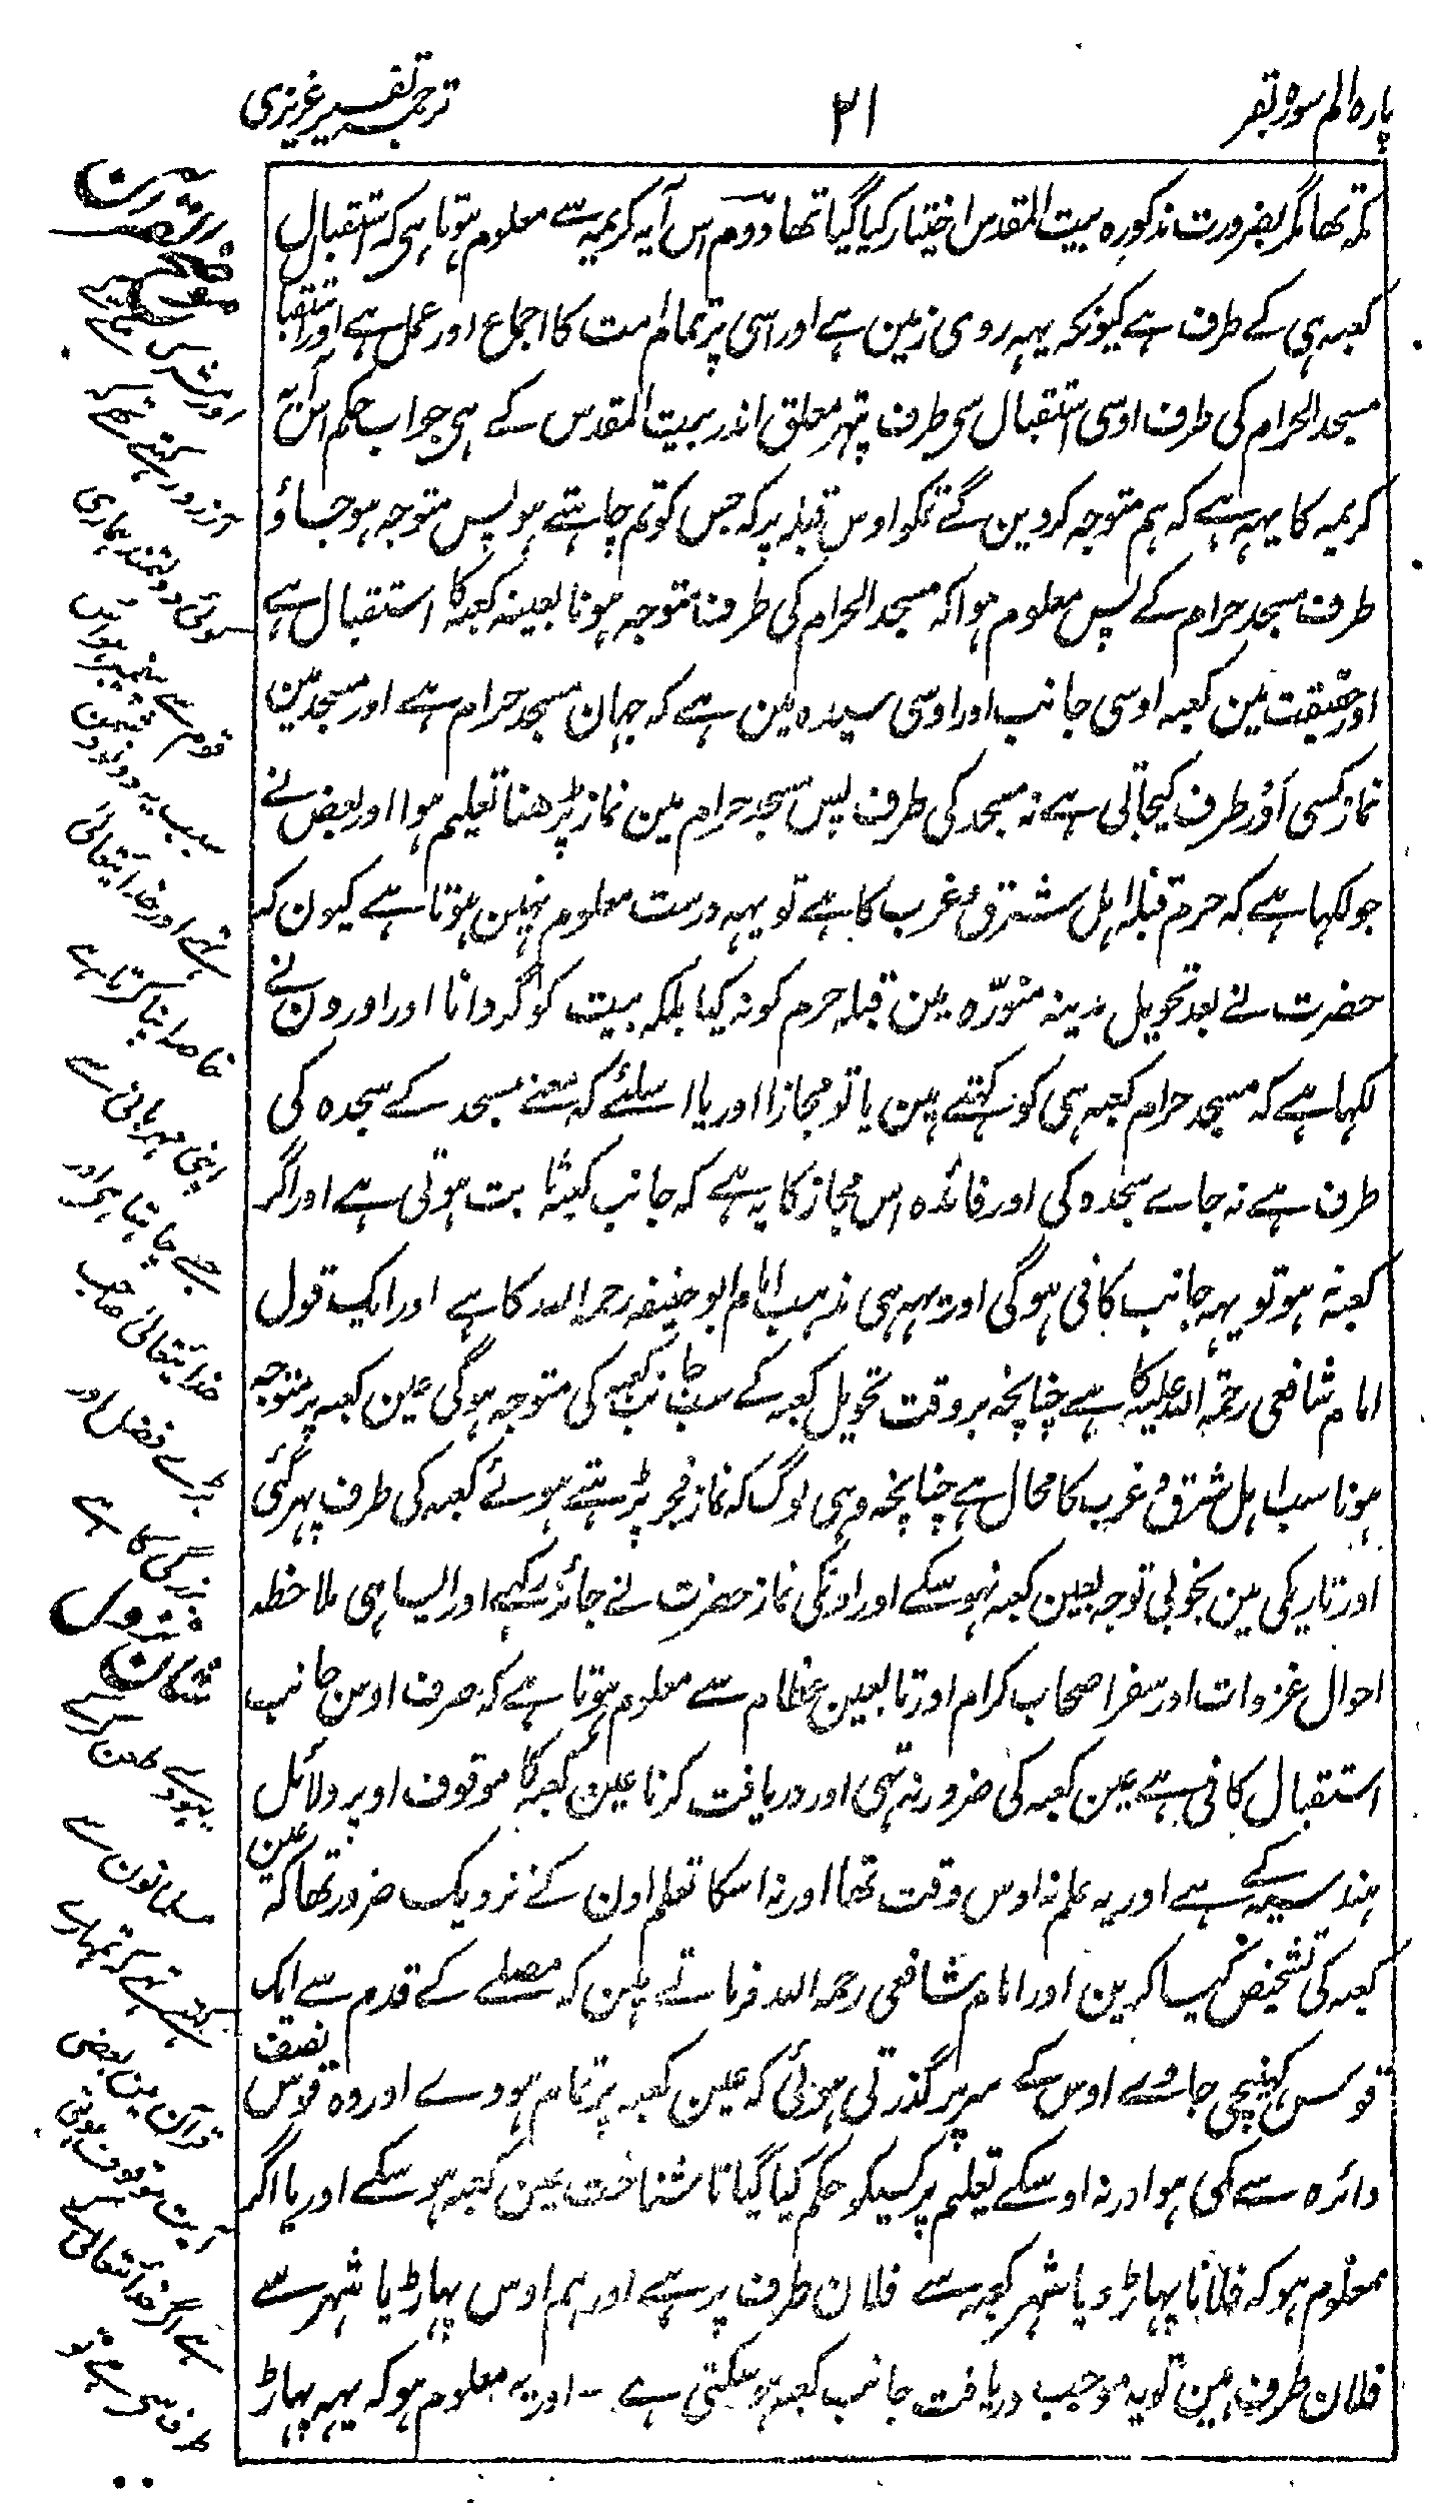 پاره الم سوره بقر
۲۱
ترجمہ تفسیر عزیزی
مکہ تھا مگر بضرورت مذکورہ بیت المقدس اختیار کیا گیا تھا دوّم اس آیہ کریمہ سے معلوم ہوتا ہی کہ استقبال
کعبہ ہی کے طرف ہے کیونکہ یہہ روی زمین ہے اور اسی پر تمام امت کا اجماع اور عمل ہے اور استقبا
مسجد الحرام کی طرف اوسی استقبال سی طرف پتھر معلق اندر بیت المقدس کے ہی جواب حکم اس آیہ
کریمہ کا یہہ ہے کہ ہم متوجہ کر دین گے تمکو اوس قبلہ پر کہ جس کو تم چاہتے ہو پس متوجہ ہو جاؤ
طرف مسجد حرام کے پس معلوم ہوا کہ مسجد الحرام کی طرف متوجہ ہونا بعینہ کعبہ کا استقبال ہے
اور حقیقت مین کعبہ اوسی جانب اور اوسی سیدہ مین ہے کہ جہان مسجد حرام ہے اور مسجد مین
نماز کسی اَوْر طرف کیجاتی ہے نہ مسجد کی طرف پس مسجد حرام مین نماز پڑھنا تعلیم ہوا اور بعض نے
جو لکہا ہے کہ حرم قبلہ اہل مشرق و مغرب کا ہے تو یہہ درست معلوم نہین ہوتا ہے کیون کہ
حضرت نے بعد تحویل مدینہ منوّرہ مین قبلہ حرم کو نہ کیا بلکہ بیت کو گردانا اور اورون نے
لکہا ہے کہ مسجد حرام کعبہ ہی کو کہتے ہین یا تو مجازا اور یا اسلئے کہ معنے مسجد کے سجدہ کی
طرف ہے نہ جاے سجدہ کی اور فائدہ اس مجاز کا یہ ہے کہ جانب کعبہ ثابت ہوتی ہے اور اگر
کعبہ نہ ہو تو یہہ جانب کافی ہوگی اور یہہ ہی مذہب امام ابو حنیفہ رحمہ اللہ کا ہے اور ایک قول
امام شافعی رحمۃ اللہ علیہ کا ہے چنانچہ بر وقت تحویل کعبہ کے سب جانب کعبہ کی متوجہ ہوگی عین کعبہ پر متوجہ
ہونا سب اہل مشرق و مغرب کا محال ہے چنانچہ وہی لوگ کہ نماز فجر پڑہتے ہوئے کعبہ کی طرف پہر گئی
اور تاریکی مین بخوبی توجہ بعین کعبہ نہو سکے اور اونکی نماز حضرت نے جائز رکہی اور ایسا ہی ملاحظہ
احوال غزوات اور سفر اصحاب کرام اور تابعین عظام سے معلوم ہوتا ہے کہ صرف اوس جانب
استقبال کافی ہے عین کعبہ کی ضرور نہ تہی اور دریافت کرنا عین کعبہ کا موقوف اوپر دلائل
ہندسیہ کے ہے اور یہ علم نہ اوس وقت تھا اور نہ اسکا تعلم اون کے نزدیک ضرور تھا کہ عین
کعبہ کی تشخیص کیا کرین اور امام شافعی رحمہ اللہ فرماتے ہین کہ مصلے کے قدم سے ایک
قوس کہینچی جاوے اوس کے سر پر گذرتی ہوئی کہ عین کعبہ پر تمام ہووے اور وہ قوس نصف
دائرہ سے کمی ہو اور نہ اوسکے تعلیم پر کسیکو حکم کیا گیا تا شناخت عین کعبہ ہو سکے اور یا اگر
معلوم ہو کہ فلانا پہاڑ و یا شہر کعبہ سے فلان طرف پر ہے اور ہم اوس پہاڑ یا شہر سے
فلان طرف ہین تو یہ موجب دریافت جانب کعبہ ہو سکتی ہے - اور یہ معلوم ہو کہ یہہ پہاڑ
قوم سے نہین ہوا اس
سبب یہ دونو دشمن
ہے اور خدایتعالی
خاص اپنا کرتا ہے
اپنی مہربانی سے
جسے چاہتا ہی اور
خدایتعالی صاحب
بڑے فضل اور
بزرگی کا ہے
شان نزول
یہود طعن کرکے
مسلمانون سے
کہتے تہے کہ تمہارے
قرآن مین بعضی
آیت موقوف ہوتی
ہے اگر خدایتعالی کے
طرف سی ہے تو